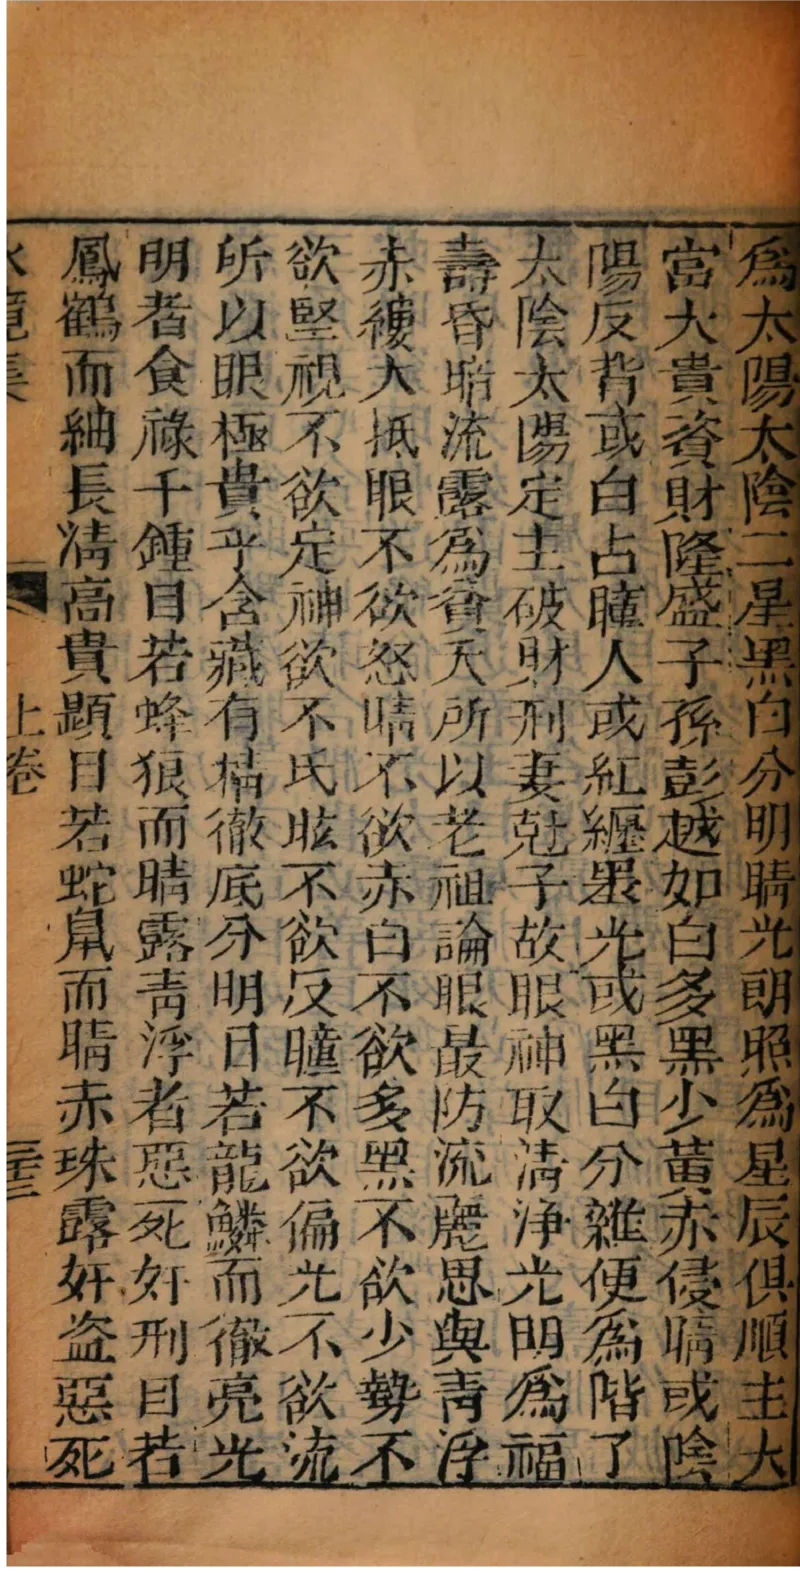 為太陽太陰二星黑白分明睛光朗照為星辰俱順主大
富大貴資財隆盛子孫彭越如白多黑少黃赤侵睛或陰
陽反背或白占瞳人或紅纒眼光或黑白分雜便為階了
太陰太陽定主破財刑妻尅子故眼神取清淨光明為福
壽昏暗流露為貧夭所以老祖論眼最防流麗思與青浮
赤縷大抵眼不欲怒睛不欲赤白不欲多黑不欲少勢不
欲竪視不欲定神欲不氏眩不欲反瞳不欲偏光不欲流
所以眼極貴乎含藏有樀徹底分明目若龍鱗而徹亮光
明者食祿千鍾目若蜂狼而睛露青浮者惡死奸刑目若
鳳鶴而紬長清高貴顯目若蛇鼠而睛赤珠露奸盜惡死
水鏡集
上卷
三十三